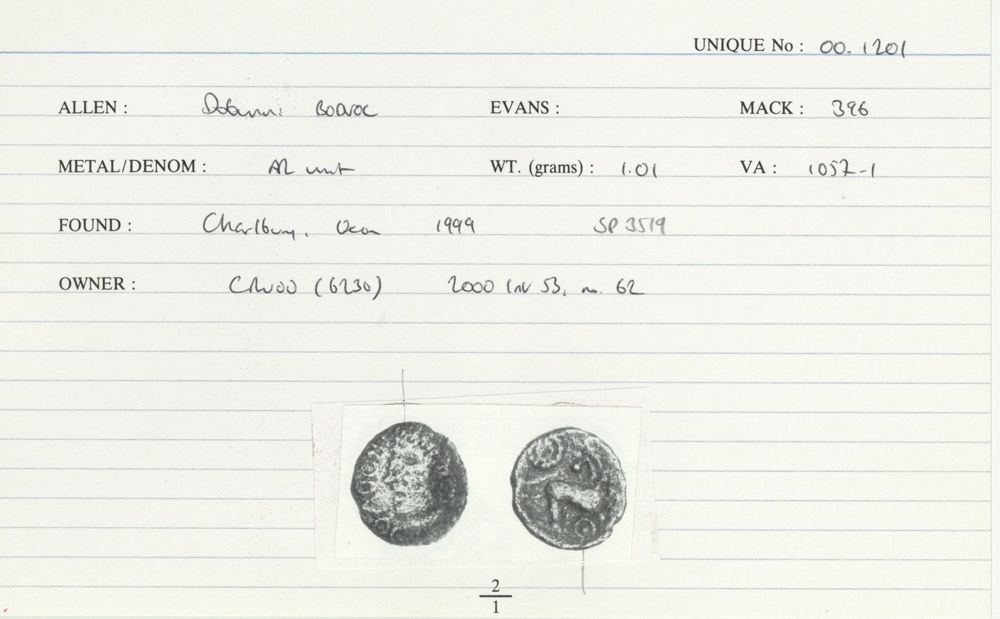 UNIQUE No : 00.1201
ALLEN : Dobunni BODVOC EVANS : MACK : 396
METAL/DENOM : AR unit WT. (grams) : 1.01 VA : 1057-1
FOUND : Charlbury, Oxon 1999 SP 3519
OWNER : (6230) 2000 Inv 53, no. 62
2
1